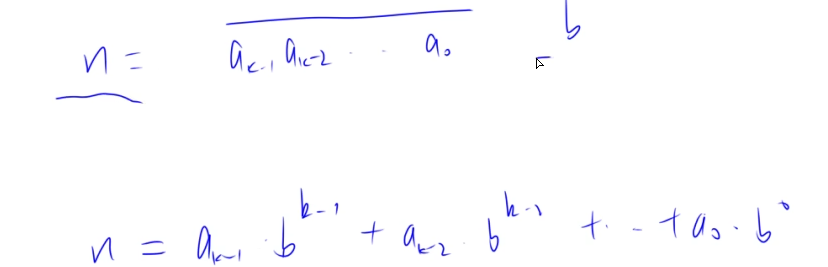 n = \overline{a_{k-1} a_{k-2} \cdots a_0} b
n = a_{k-1} \cdot b^{k-1} + a_{k-2} \cdot b^{k-2} + \cdots + a_0 \cdot b^0